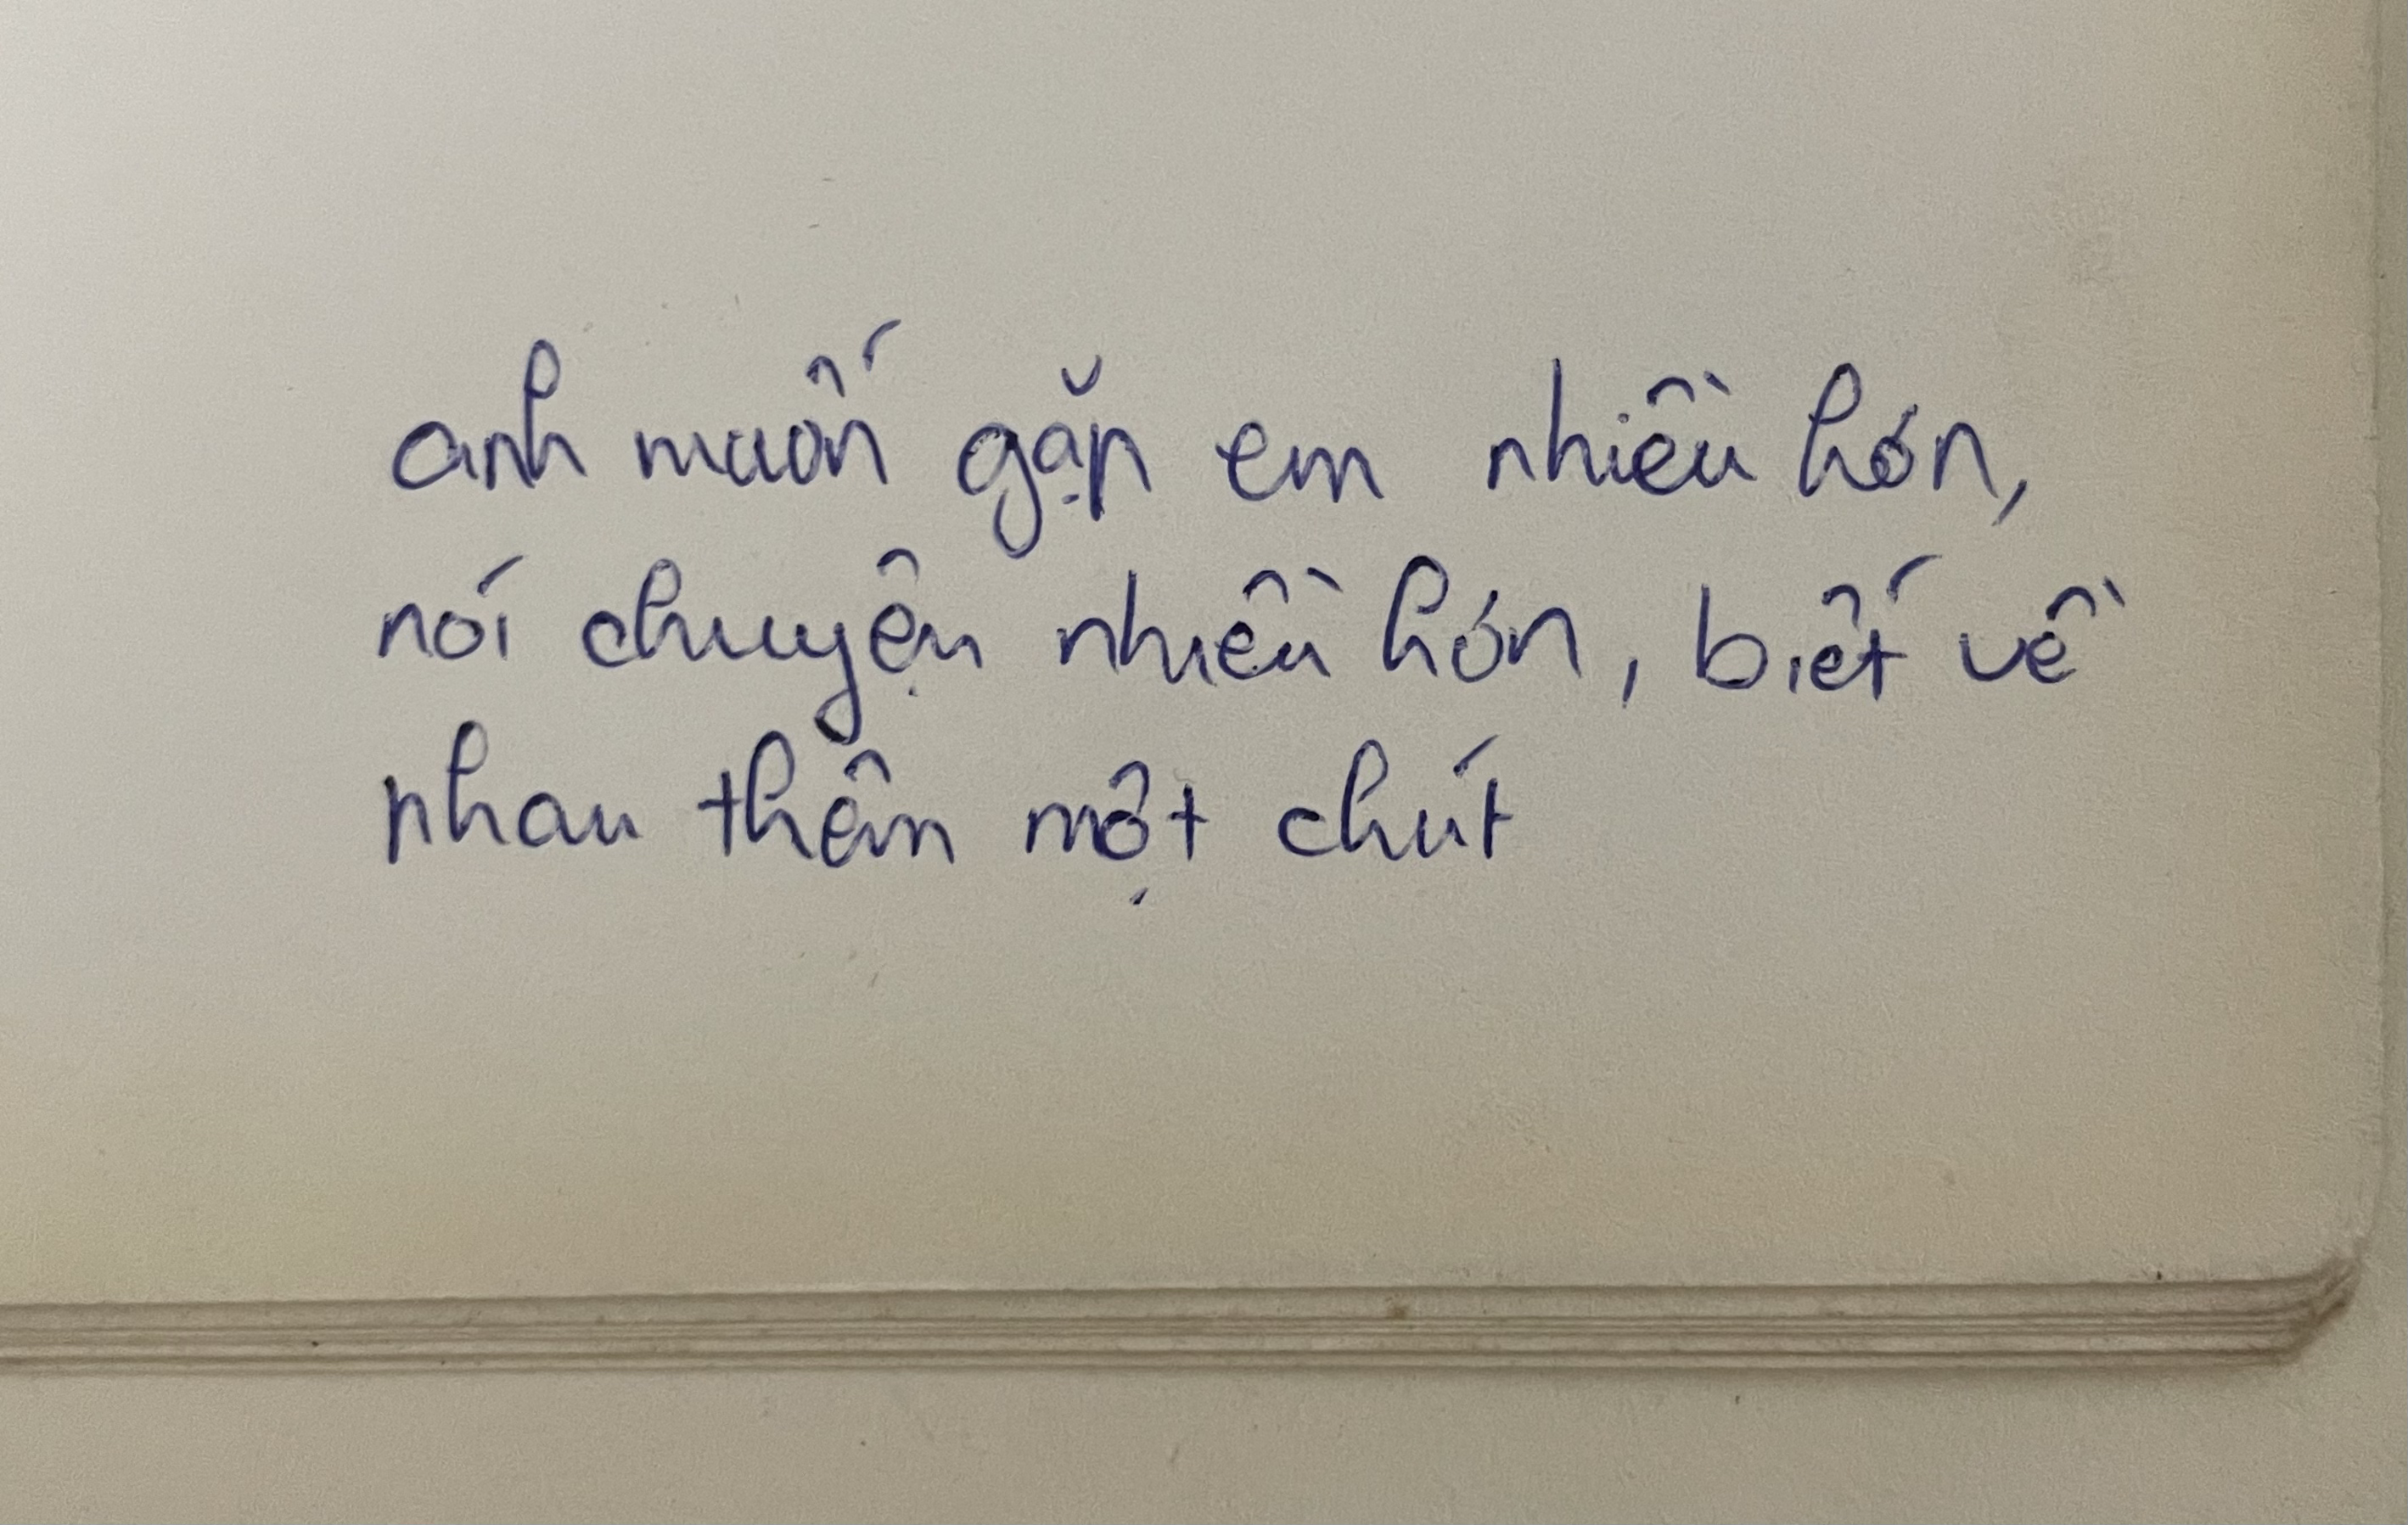 anh muốn gặp em nhiều hơn,
nói chuyện nhiều hơn, biết về
nhau thêm một chút